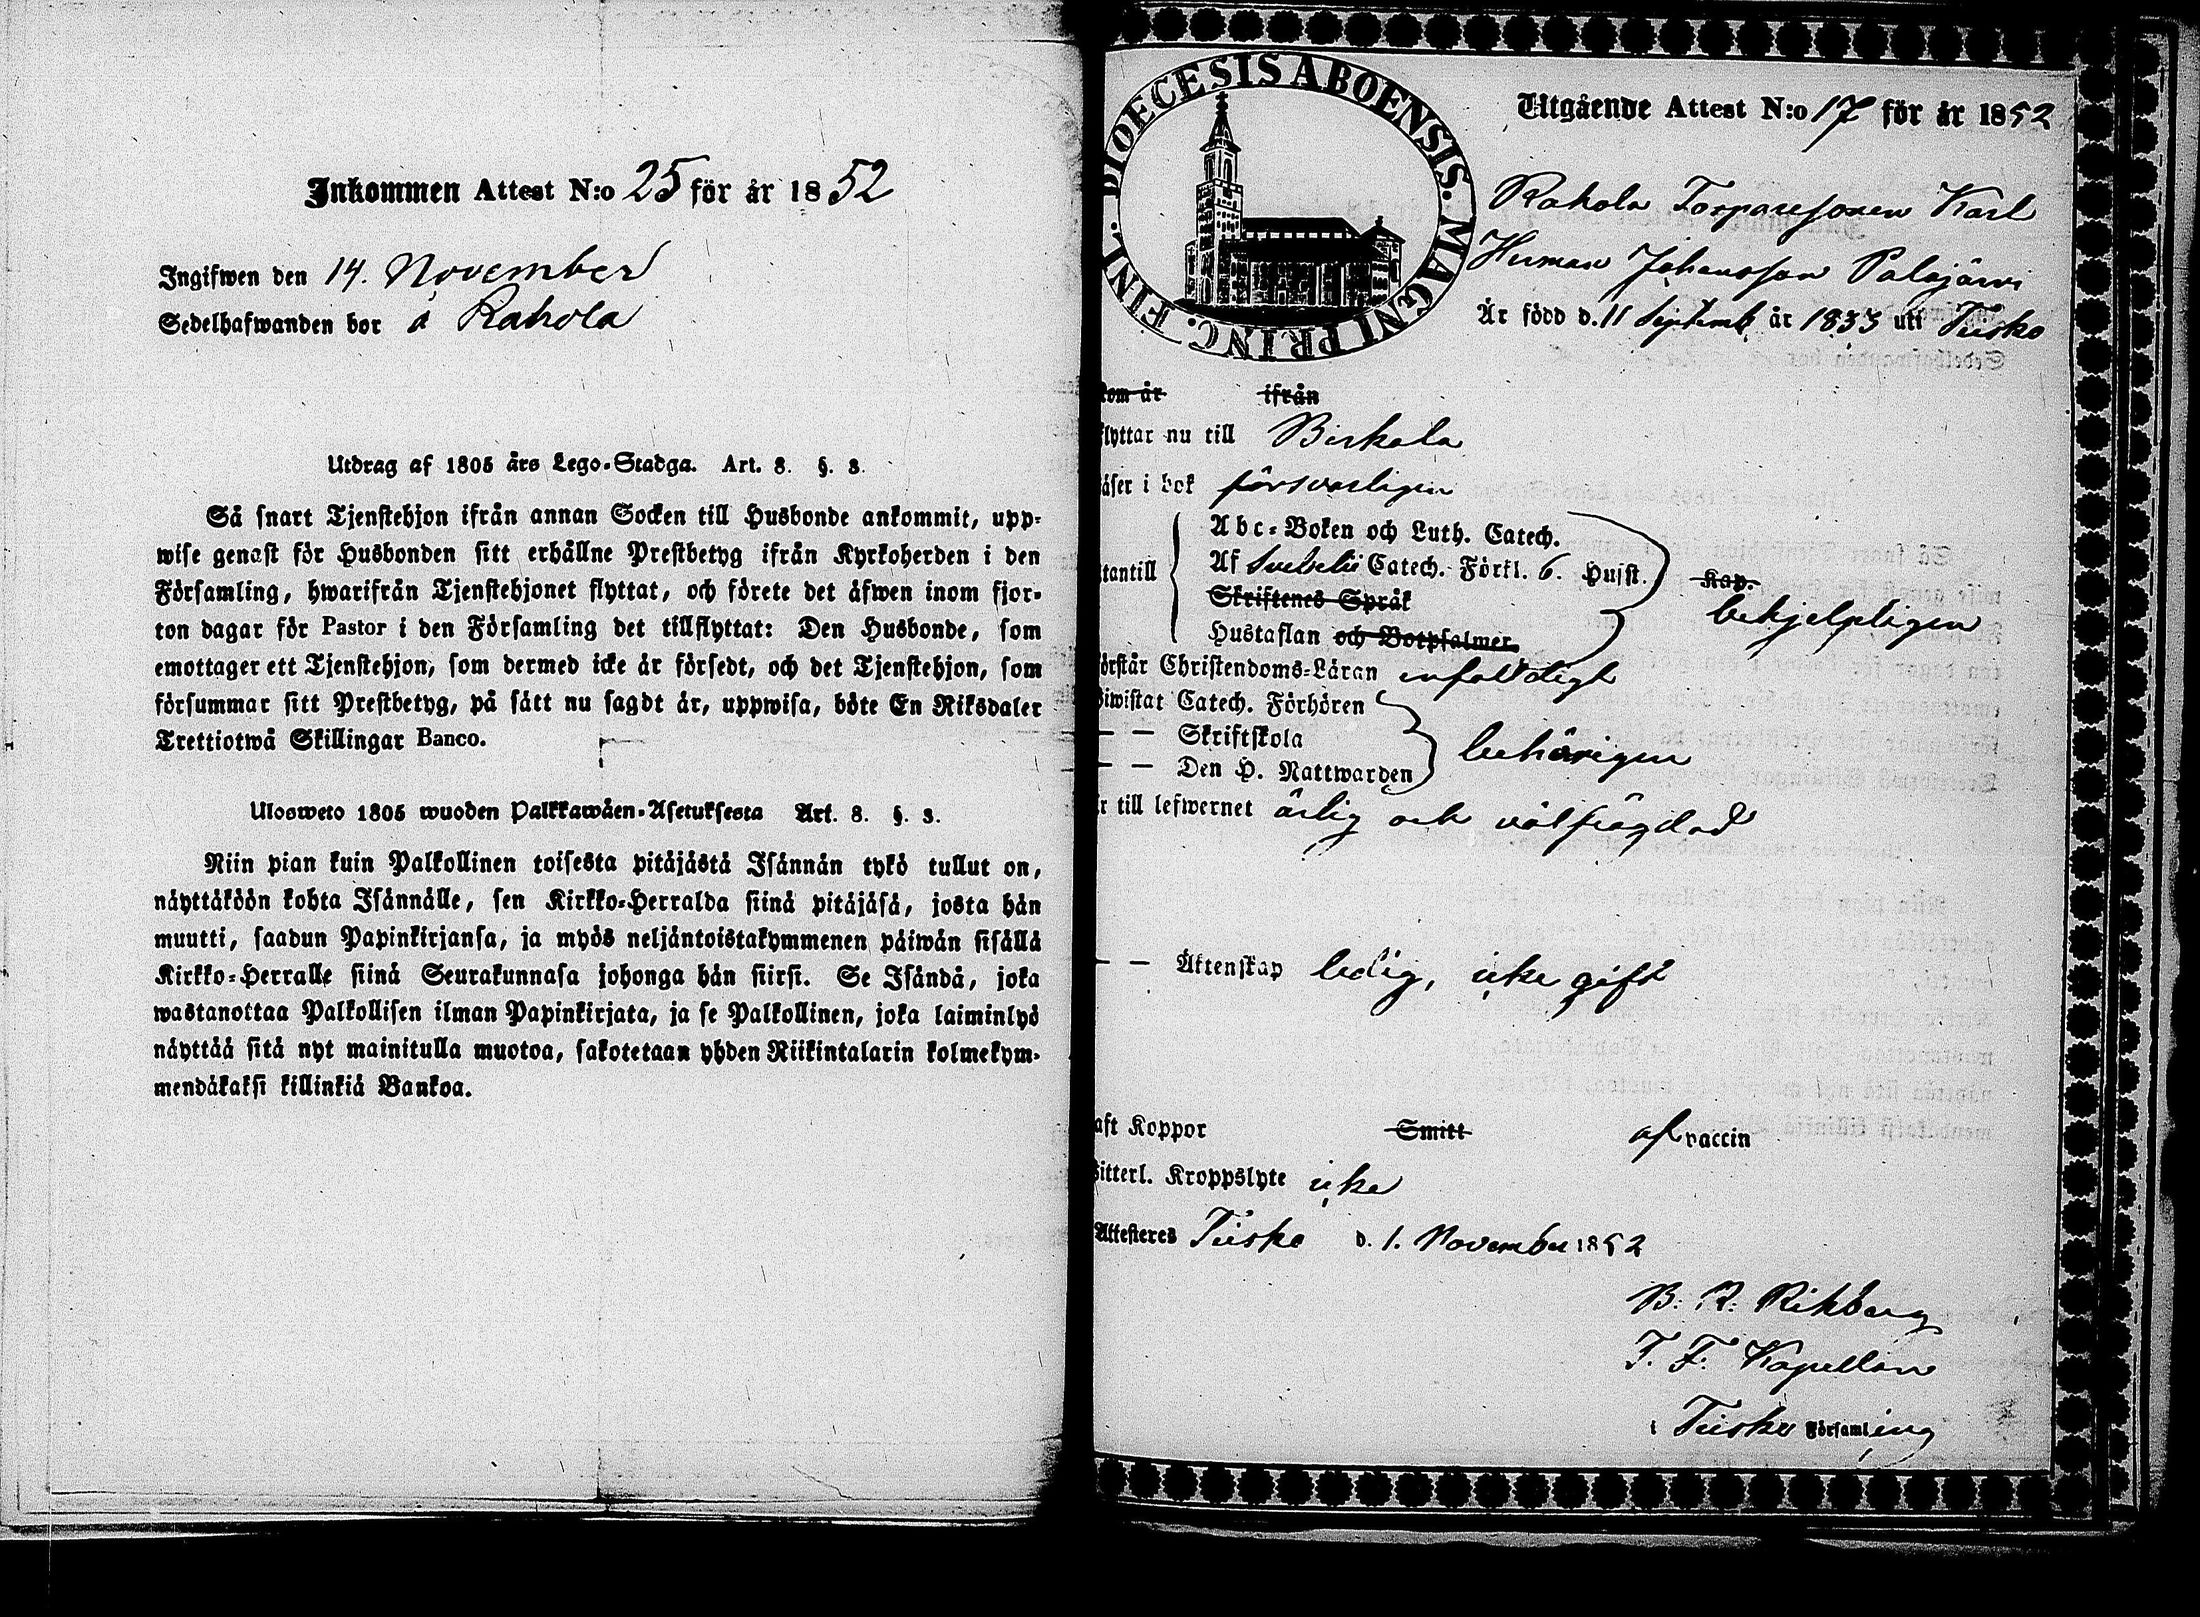 Inkommen Attest N:o 25 för år 1852
Ingifwen den 14. November
Sedelhafwanden bor å Rahola
Utdrag af 1805 års Lego-Stadga. Art. 8. §. 3.
Så snart Tjenstehjon ifrån annan Socken till Husbonde ankommit, upp-
wise genast för Husbonden sitt erhållne Prestbetyg ifrån Kyrkoherden i den
Församling, hwarifrån Tjenstehjonet flyttat, och förete det äfwen inom fjor-
ton dagar för Pastor i den Församling det tillflyttat: Den Husbonde, som
emottager ett Tjenstehjon, som dermed icke är försedt, och det Tjenstehjon, som
försummar sitt Prestbetyg, på sätt nu sagdt är, uppwisa, böte En Riksdaler
Trettiotwå Skillingar Banco.
Ulosweto 1805 wuoden Palkkawäen-Asetuksesta Art. 8. §. 3.
Niin pian kuin Palkollinen toisesta pitäjästä Isännän tykö tullut on,
näyttäköön kohta Isännälle, sen Kirkko-Herralda siinä pitäjäsä, josta hän
muutti, saadun Papinkirjansa, ja myös neljäntoistakymmenen päiwän sisällä
Kirkko-Herralle siinä Seurakunnasa johonga hän siirsi. Se Isändä, joka
wastanottaa Palkollisen ilman Papinkirjata, ja se Palkollinen, joka laiminlyö
näyttää sitä nyt mainitulla muotoa, sakotetaan yhden Riikintalarin kolmekym-
mendäkaksi killinkiä Bankoa.
DIOECESIS ABOENSIS. MAGNI PRINC. FINL.
Utgående Attest N:o 17 för år 1852
Rahola Torparesonen Karl
Herman Johansson Palajärvi
Är född d. 11 Septemb år 1833 uti Tüsko
kom år ifrån
flyttar nu till Birkala
läser i bok försvarligen
Abc-Boken och Luth. Catech.
utantill Af Svebelii Catech. Förkl. 6. Husst. Kap.
Skriftenes Språk
behjelpligen
Hustaflan och Botpsalmer.
örstår Christendoms-Läran enfaldigt
Biwistat Catech. Förhören
— — Skriftskola behörigen
— — Den H. Nattwarden
r till lefwernet ärlig och välfrägdad
— — Äktenskap ledig, icke gift
aft Koppor Smitt af vaccin
Witterl. Kroppslyte icke
Attesteres Tüsko d. 1. November 1852
B: R: Rikberg
T. F. Kapellan
i Tüsko Församling